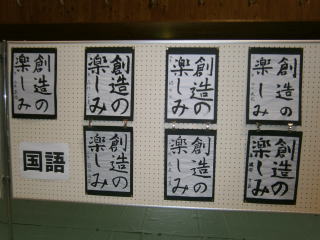 創造の
楽しみ
創造の
楽しみ
創造の
楽しみ
創造の
楽しみ
国語
創造の
楽しみ
創造の
楽しみ
創造の
楽しみ